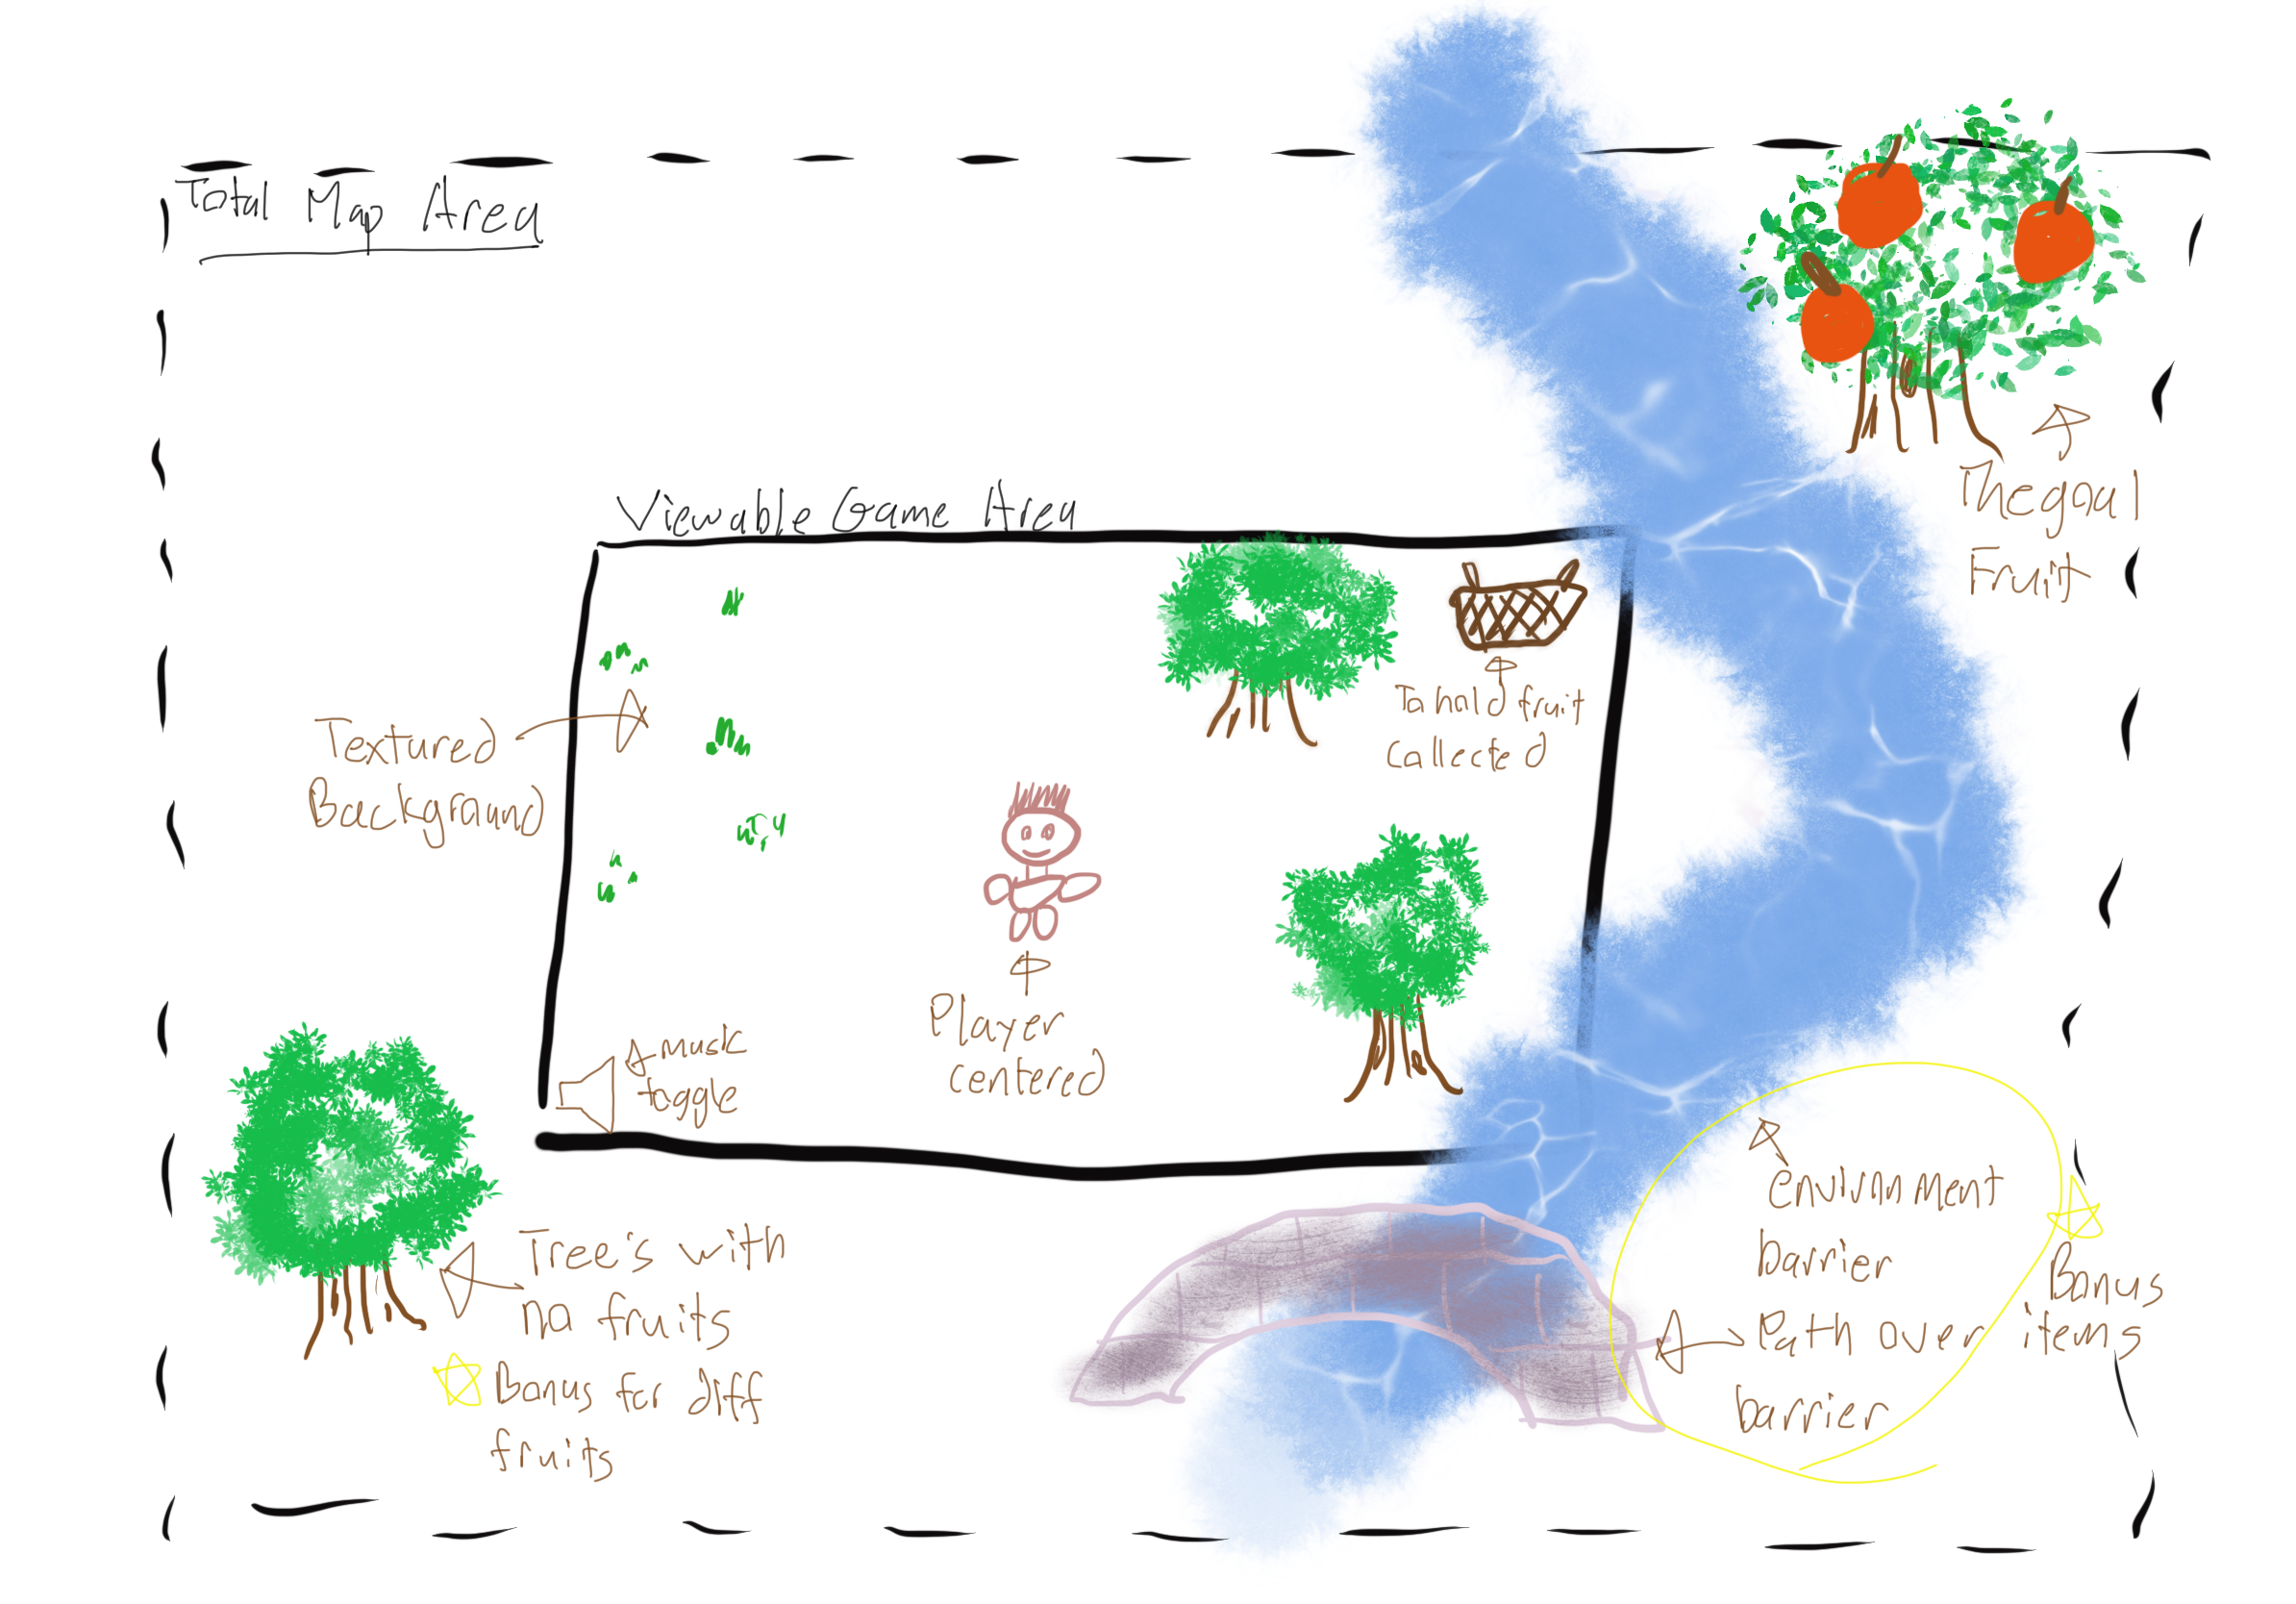 Total Map Area
Viewable Game Area
The goal
Fruit
To hold fruit
collected
Textured
Background
Player
centered
music
toggle
Tree's with
no fruits
Bonus for diff
fruits
envirnment
barrier
Path over
barrier
Bonus
items